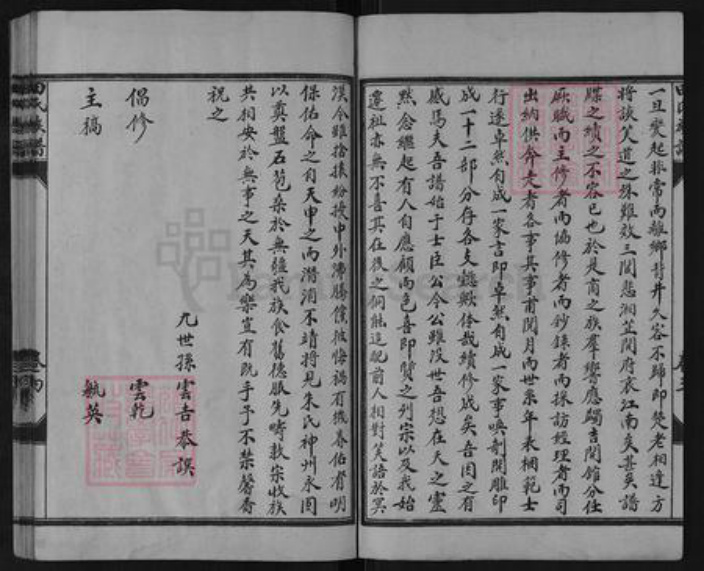 一旦變起非常而離鄉背井久客不歸即楚老相逢方
將談笑道之殊難效三閭悲湘芷開府哀江南矣甚矣譜
牒之續之不容已也於是商之族羣響應蠲吉開館分任
厥職而主修者而協修者而鈔錄者而採訪經理者而司
出納供奔走者各事其事甫閱月而世系年表楣範士
行遂卓然自成一家言即卓然自成一家事喚剞開雕印
成一十二部分存各支懿歟休哉續修成矣吾因之有
感焉夫吾譜始于士臣公今公雖沒世吾想在天之靈
默念繼起有人自應顧而色喜即贊之列宗以及我始
遷祖亦無不喜其在後之侗能追配前人相對笑語於冥
漠今雖搶攘紛擾中外沸騰儻彼悔禍有機眷佑有明
保佑命之自天申之而潛消不靖將見朱氏神州永固
以奠盤石苞桑於無疆我族食舊德服先疇敦宗收族
共相安於無事之天其為樂豈有既乎予不禁馨香
祝之
九世孫雲吉恭譔
倡修 雲乾
主稿 毓英
田氏族譜